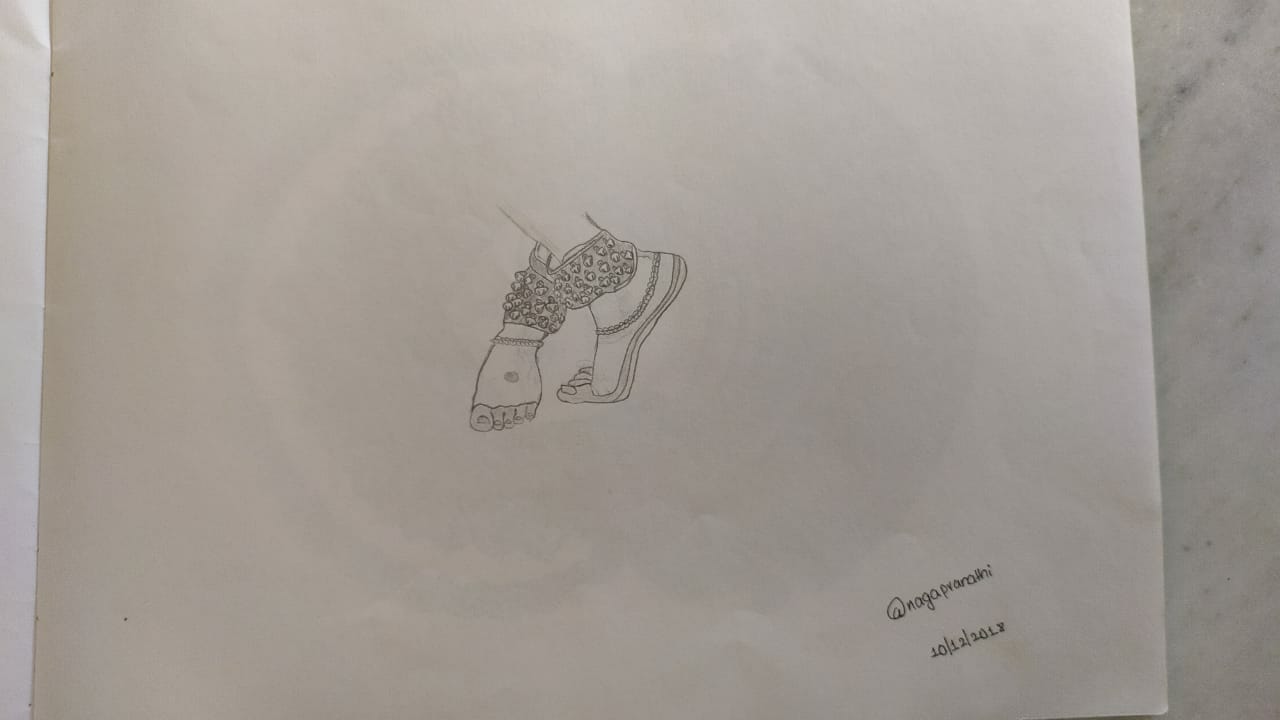 @nagapranathi
10/12/2018